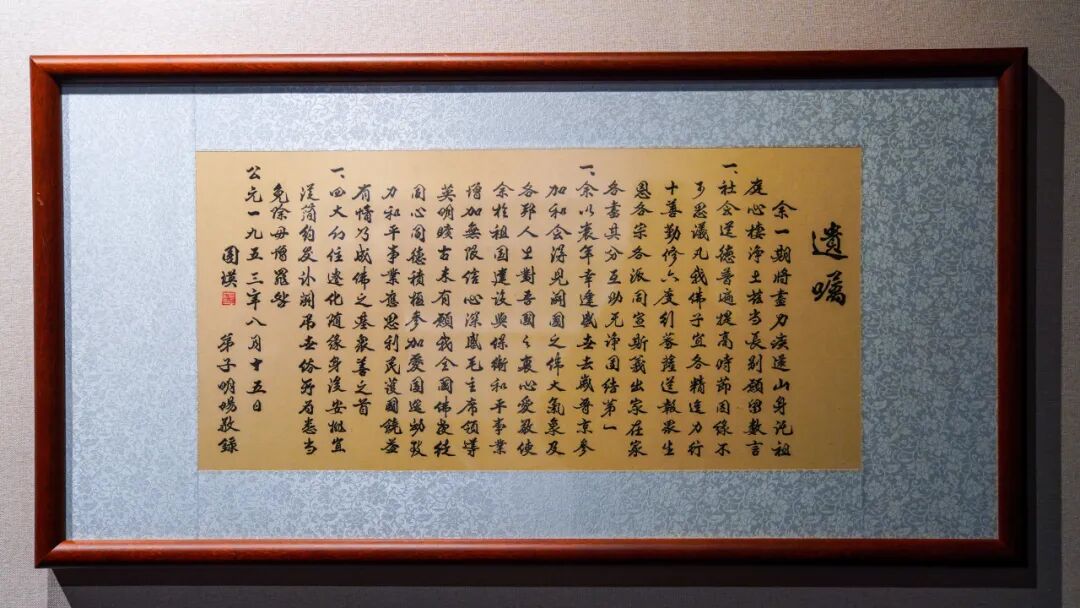 遺囑
余一期將盡力疾還山身託祖
庭心棲淨土茲當長別願留數言
一、社會道德普遍提高時節因緣不
可思議凡我佛子宜各精進力行
十善勤修六度行菩薩道報衆生
恩各宗各派同宣斯義出家在家
各盡其分互助无諍團結第一
一、余以衰年幸逢盛世去歲晉京參
加和會得見開國之偉大氣象及
各邦人士對吾國之衷心愛敬使
余於祖國建設與保衛和平事業
增加無限信心深感毛主席領導
英明曠古未有願我全國佛教徒
同心同德積極參加愛國運動致
力和平事業應思利民護國饒益
有情乃成佛之基衆善之首
一、四大幻住遷化隨緣身後安排宜
從簡約受訃開吊世俗所為悉當
免除毋增罪咎
公元一九五三年八月十五日
圓瑛 弟子明暘敬錄